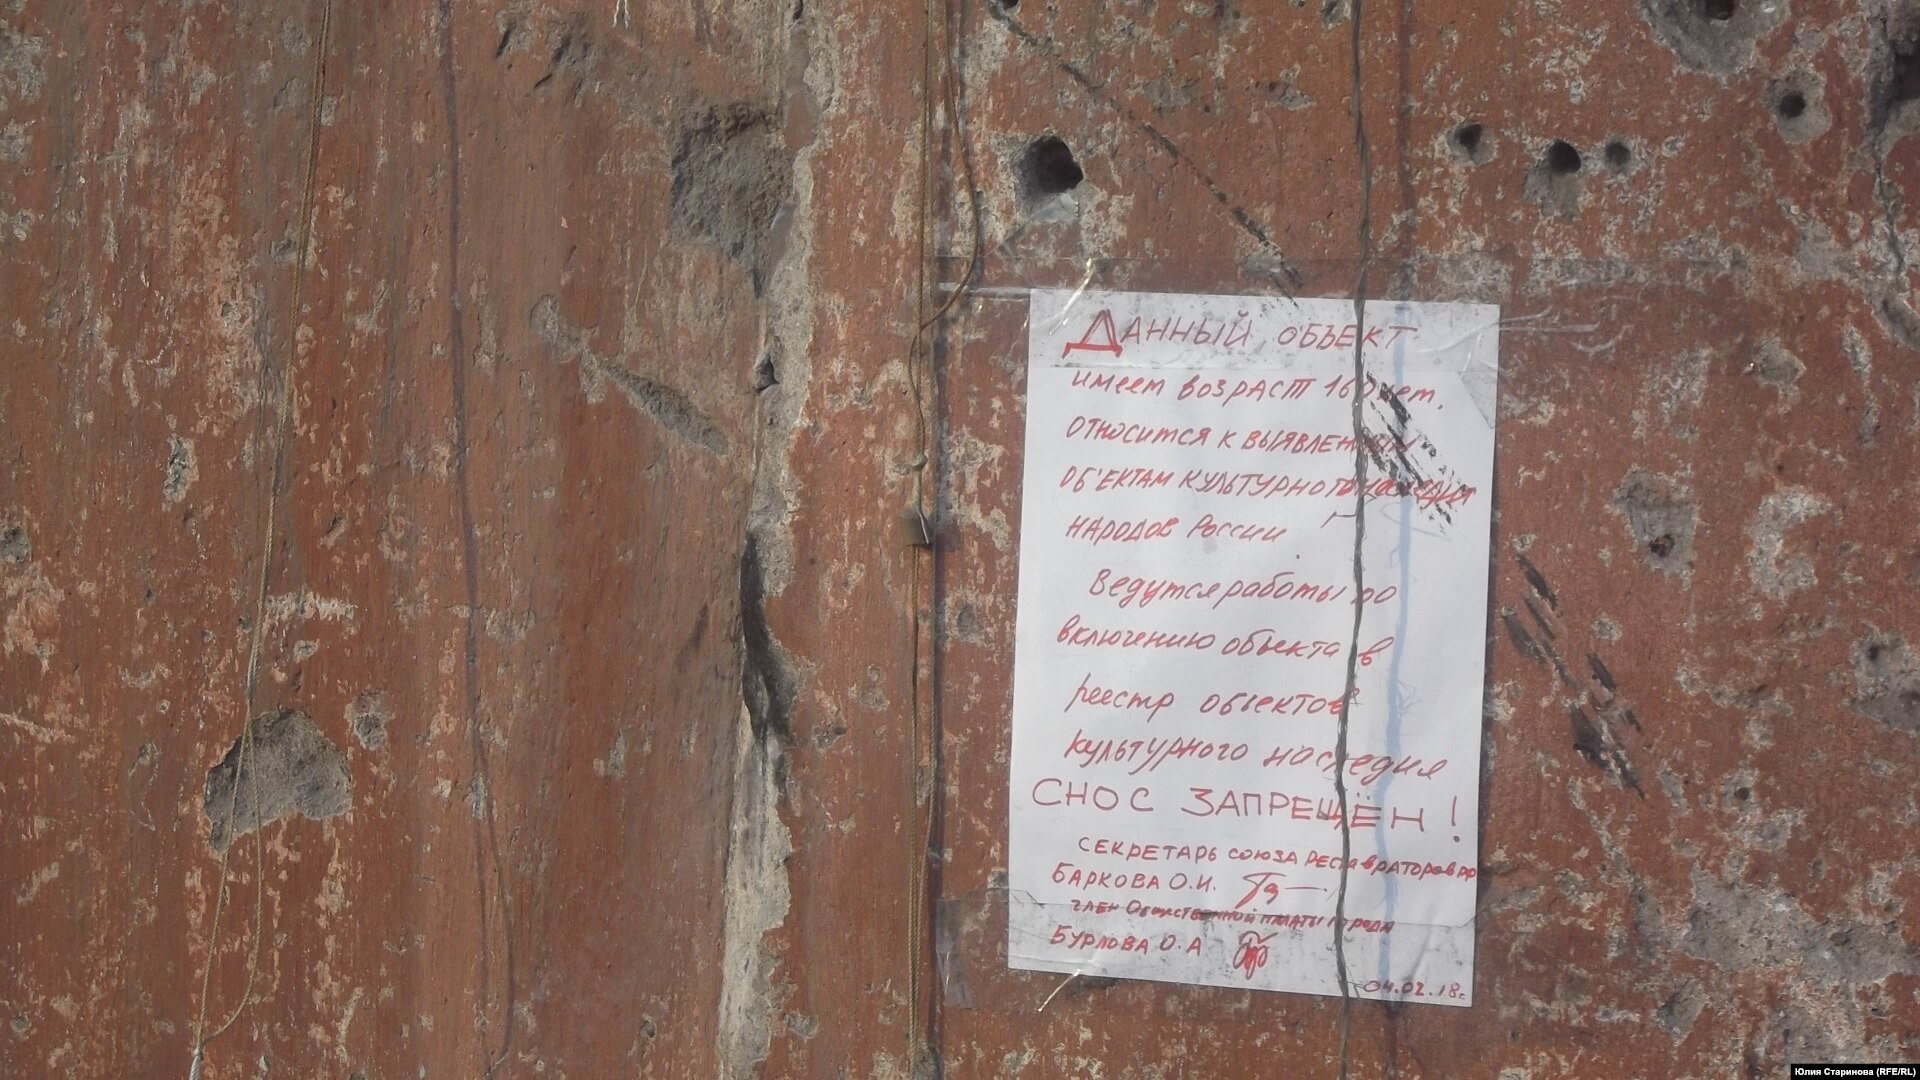 Данный объект
имеет возраст 160 лет.
относится к выявленным
об'ектам культурного наследия
народов России.
Ведутся работы по
включению объекта в
реестр объектов
культурного наследия
СНОС ЗАПРЕЩЁН!
СЕКРЕТАРЬ СОЮЗА РЕСТАВРАТОРОВ РФ
БАРКОВА О.И.
член Общественной палаты города
БУРЛОВА О.А
04.02.18г.
Юлия Старинова (RFE/RL)